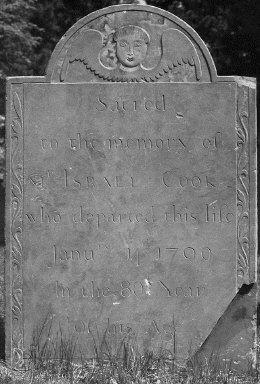 Sacred
to the memory of
Mr. ISRAEL COOK
who departed this life
Janury 4 1790
In the 80th Year
of his Age